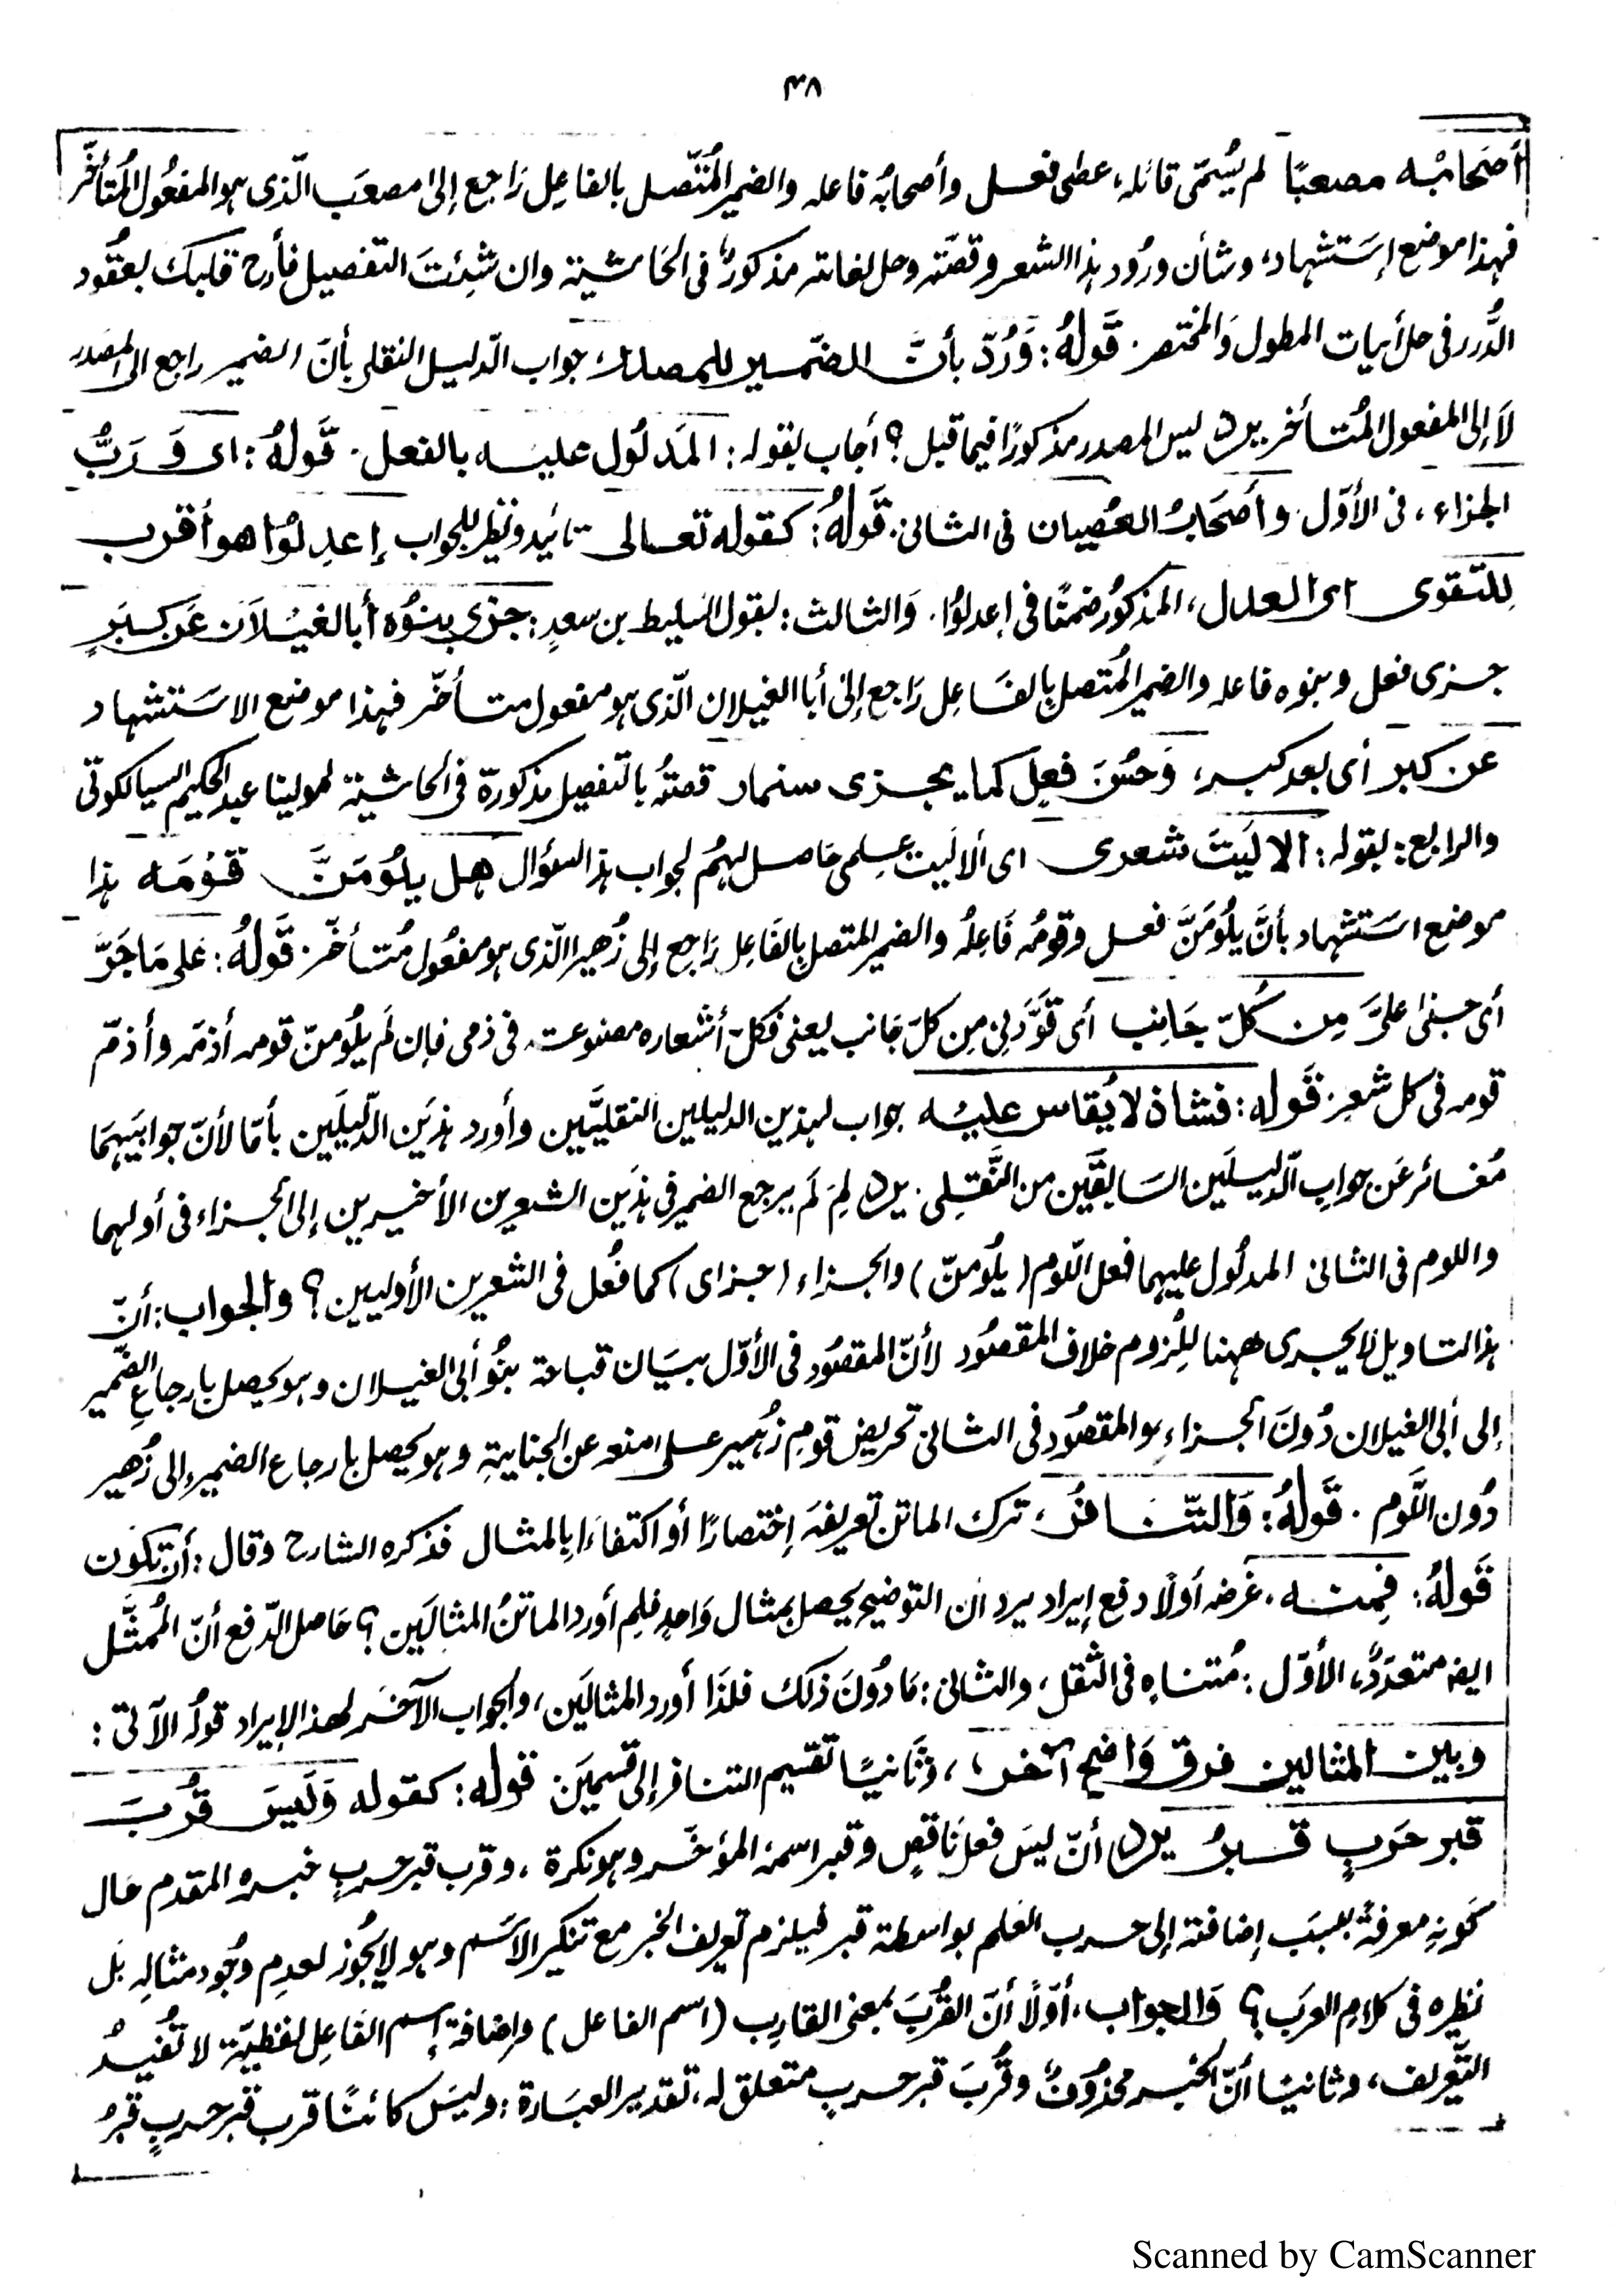 ٣٨
أَصَحَابُه مصعبًا لم يُسمّى قائله، عطى فعل وأصحابُه فاعله والضمير المُتّصل بالفاعِل رَاجع إلى مصعَب الّذى هو المفعُول المُتأخّر
فهذا موضع إستشهاد، وشأن ورُود هذا الشعر وقصّته وحل لغاته مذكورٌ فى الحَاشية وان شِئتَ التفصيل فأرح قلبك بعقُود
الدُّرر فى حل أبيات المطول وَالمختصر. قَولهُ: وَرُدّ بأنّ الضّمير للمصدر، جواب الدّليل النقلى بأنّ الضمير راجع الى المصدر
لَا إلى المفعول المُتأخر يرد ليس المصدر مذكورًا فيما قبل؟ أجاب بقوله: المَدلُول عليه بالفعل. قَولهُ: اى وَرَبُّ
الجزاء، فى الأوّل وأصَحَابُ العُصِيان فى الثانى. قَولهُ: كقوله تعالى تائيد ونظير للجواب إعدِلُوا هو أقرب
لِلتّقوى اى العدل، المذكورُ ضمنًا فى اعدلوُا. وَالثالث: بقول السَليط بن سعدٍ: جزى بنوُه أبا الغيلَان عَن كِبَرٍ
جزى فعل وبنوه فاعله والضمير المُتصل بالفَاعِل رَاجع إلى أبا الغيلان الّذى هو مفعول متأخّر فهذا موضع الاستَشهاد
عن كبر أى بعد كبر، وَحُسنَ فعِل كما يجزى سنمار قصتهُ بالتفصيل مذكورة فى الحاشية لمولينا عبد الحكيم السيالكوتى
والرابع: بقوله: الا لَيتَ شعرى اى ألا لَيت عِلمى حَاصل لهمُ لجواب هذا السؤال هل يلوُمَنَّ قوُمَه هذا
موضع استَشهاد بأنَّ يلُومَنَّ فعل وقومُه فَاعِلُه والضمير المتصل بالفَاعِل رَاجع إلى زُهير الّذى هو مفعُول مُتأخّر. قَولهُ: عَلى مَا جَرَّ
أى جنىٰ علىَّ مِن كُلّ جَانِب أى قوَّدنى مِن كلّ جَانب يعنى فكلّ أشعاره مصنوعة فى ذمى فإن لَم يلُومنّ قومه أذمّه وأذمّ
قومه فى كل شعرٍ. قَوله: فشاذ لا يُقاس عليه جواب لهذين الدليلين النقليَّين وأورد هذَين الدّليلَين بأمّا لأنّ جوابَيهمَا
مُغائر عَن جوابِ الدّليلَين السَابقَين من النَّقلِى. يرد لِمَ لَم يرجع الضمير فى هذَين الشعرين الأخيرين إلى الجزاء فى أولهما
واللوم فى الثانى المدلُول عليهما فعل اللّوم (يلُومنّ) والجزاء (جزاى) كما فُعل فى الشعرين الأوليين؟ والجواب: أنّ
هذا التاويل لا يجرى ههنا لِلُزوم خلاف المقصُود لأنّ المقصُود فى الأوّل بيَان قباحة بنُو أبى الغيلان وهو يحصل بارجاعِ الضّمير
إلى أبى الغيلان دُونَ الجزاءِ والمقصُود فى الثانى تحريض قومِ زُهير على منعه عن الجنايةِ وهو يحصل بارجاع الضمير إلى زُهير
دُون اللَّوم. قَولهُ: وَالتّنافرُ، ترك الماتن تعريفهَ إختصارًا أو اكتفاءًا بِالمثال فذكره الشارح وقال: أن تكون
قَولهُ: فِمنه، غرضه أولًا دفع إيراد يرد ان التوضيح يحصل بمثال وَاحدٍ فلِم أورد الماتنُ المثالَين؟ حَاصل الدّفع أنّ المُمثَّل
ايضہ متعدّدٌ، الأوّل: مُتناهٍ فى الثقل، والثانى: مَا دُونَ ذَلك فلذَا أورد المثالَين، والجواب الآخَر لهذ الإيراد قولُه الآتى:
وبين المثالين فرق وَاضح آخر، وَثَانيًا تقسيم التنافر إلى قسمَين قوله: كقوله وَلَيسَ قُربَ
قبر حَربٍ قبرُ يرد أنّ ليسَ فعلٌ نَاقصٍ وقبر اسمهٗ المؤخّر وهو نكرة، وقرب قبر حربٍ خبره المقدم حَال
كَونهِ معرفةً بسبَب إضافته إلى حرب العلم بواسطة قبر فيلزم تعريف الخبر مع تنكير الاسَم وهو لا يجُوز لعدمِ وجُود مثالهِ بَل
نظيره فى كلامِ العرَب؟ وَالجواب، أوّلًا أنّ القُربَ بمعنى القارِب (اسم الفاعل) وإضافة إسم الفَاعِل لفظيّة لا تُفيدُ
التّعريف، وثانيًا أنّ الخبر محذُوفٌ وقُربَ قبر حربٍ متعلق له، تقدير العبَارة: وليسَ كائنًا قرب قبر حربٍ قبرُ
Scanned by CamScanner